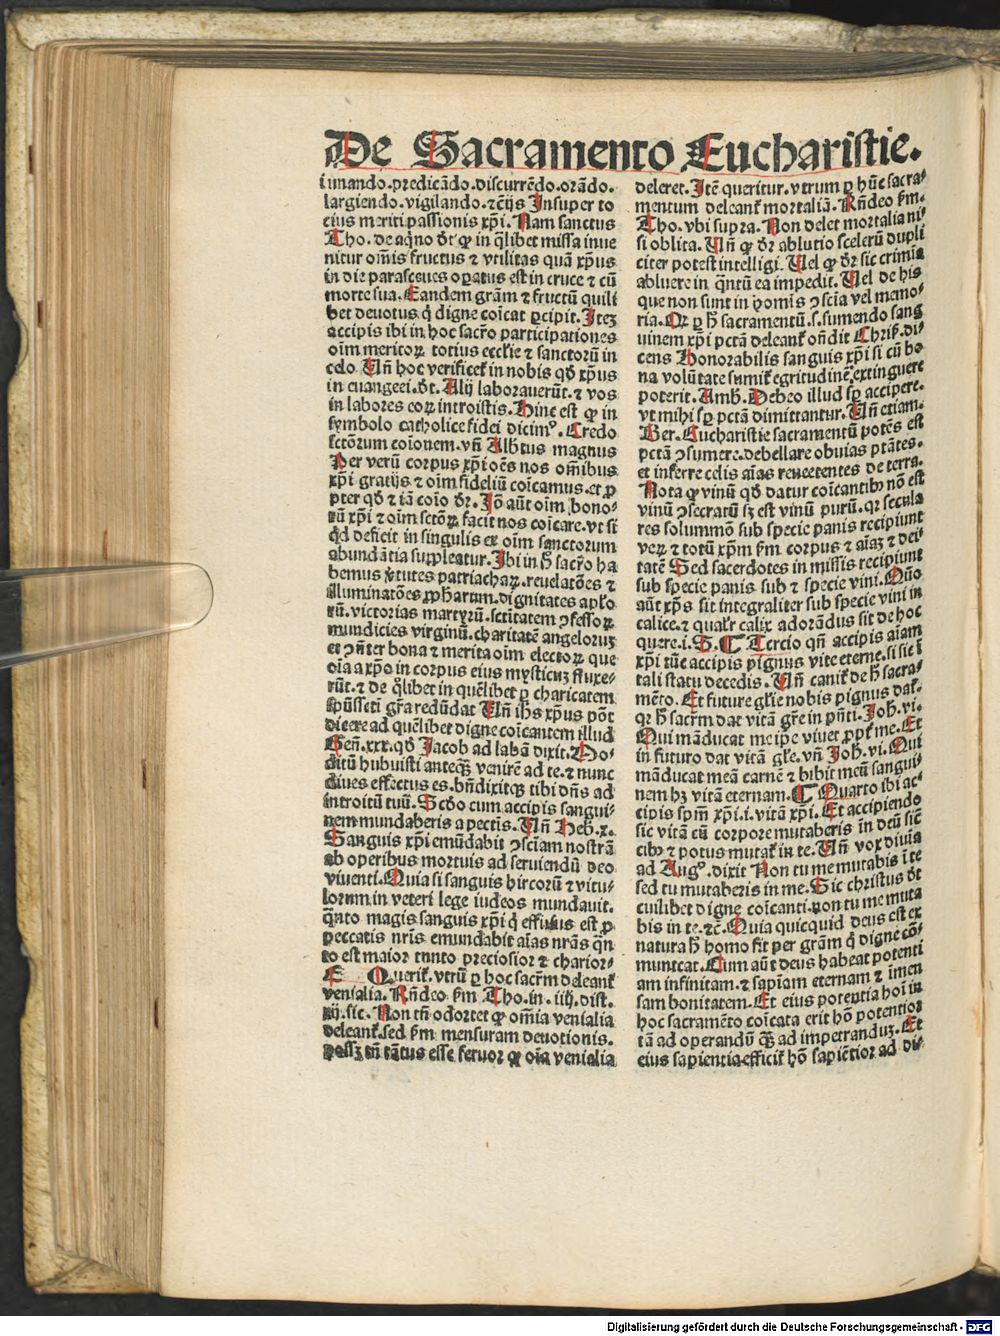 De Sacramento Eucharistie.
iunando.predicādo.discurrēdo.orādo.
largiendo.vigilando.⁊cēijs Insuper to
eius meriti passionis xp̄i. Nam sanctus
Tho. de aq̄no dt̄ ꝙ in q̄libet missa inue
nitur om̄is fructus ⁊ vtilitas quā xp̄us
in die parasceues oꝑatus est in cruce ⁊ cū
morte sua. Eandem grām ⁊ fructū quili
bet deuotus q̇ digne coīcat ꝑcipit. Itez
accipis ibi in hoc sacr̄o participationes
oīm meritoꝝ totius ecclīe ⁊ sanctorū in
celo. Vn̄ hoc verificet̄ in nobis qd̄ xp̄us
in euangeei. dt̄. Alij laborauerūt. ⁊ vos
in labores eoꝝ introistis. Hinc est ꝙ in
symbolo catholice fidei dicim⁹. Credo
sctōrum coīonem. vn̄ Alb̄tus magnus
Per verū corpus xp̄i oēs nos om̄ibus
xp̄i gratijs ⁊ oīm fideliū coīcamus. et ꝓ
pter qd̄ ⁊ iā coīo dr̄. Iō aūt oīm bono-
rū xp̄i ⁊ oīm sctōꝝ facit nos coīcare. vt si
qd̄ deficit in singulis ex oīm sanctorum
abundātia suppleatur. Ibi in h̄ sacr̄o ha
bemus v̄tutes patriachaꝝ. reuelatōes ⁊
illuminatōes ꝓpharum. dignitates apl̄o
rū. victorias martyrū. sctītatem ꝯfessoꝝ
mundicies virginū. charitatē angelorum
et ꝯn̄ter bona ⁊ merita oīm electoꝝ que
oīa a xp̄o in corpus eius mysticuz fluxe-
rūt. ⁊ de q̄libet in quēlibet ꝑ charitatem
spūsseti gr̄a redūdat Vn̄ ih̄s xp̄us pōt
dicere ad quēlibet digne coīcantem illud
Gen̄. xxx. qd̄ Jacob ad labā dixit. Mo-
dicū hubuisti anteq̄ȝ venirē ad te. ⁊ nunc
diues effectus es. bn̄dixitqȝ tibi dn̄s ad
introitū tuū. Scd̄o cum accipis sangui-
nem mundaberis a pectis. Vn̄ Heb̄. x.
Sanguis xp̄i emūdabit ꝯsciam nostrā
ab operibus mortuis ad seruiendū deo
viuenti. Quia si sanguis hircorū ⁊ vitu-
lorum in veteri lege iudeos mundauit.
q̄nto magis sanguis xp̄i q̇ effusus est ꝓ
peccatis nr̄is emundabit aīas nr̄as q̄n
to est maior tanto preciosior ⁊ charior-
E Querit̄. vtrū ꝑ hoc sacr̄m deleant̄
venialia. Rn̄deo fm̄ Tho. in. iiij. dist.
xij. sic. Non tn̄ odortet ꝙ om̄ia venialia
deleant̄. sed fm̄ mensuram deuotionis.
possȝ tn̄ tātus esse feruor ꝙ oīa venialia
deleret. Itē queritur. vtrum ꝑ hūc sacra-
mentum deleant̄ mortaliā. Rn̄deo fm̄.
Tho. vbi supra. Non delet mortalia ni-
si oblita. Vn̄ ꝙ dr̄ ablutio scelerū dupli
citer potest intelligi. Uel ꝙ dr̄ sic crimīa
abluere in q̄ntū ea impedit. Uel de his
que non sunt in homīs ꝯscīa vel memo-
ria. Qꝝ ꝑ h̄ sacramentū. s. sumendo sang
uinem xp̄i pctā deleant̄ on̄dit Chris̄. di-
cens Honorabilis sanguis xp̄i si cū bo-
na volūtate sumit̄ egritudinē extinguere
poterit. Amb̄. Debeo illud sꝑ accipere.
vt mihi sꝑ pctā dimittantur. Vn̄ etiam.
Ber. Eucharistie sacramentū potēs est
pctā ꝯsumere. debellare obuias ptātes.
et inferre celis aīas reuertentes de terra.
Nota ꝙ vinū qd̄ datur coīcantibꝫ nō est
vinū ꝯsecratū sȝ est vinū purū. qꝛ secula
res solummō sub specie panis recipiunt
veꝝ ⁊ totū xp̄m fm̄ corpus ⁊ aīaȝ ⁊ dei-
tatē Sed sacerdotes in missis recipiunt
sub specie panis sub ⁊ specie vini. Quō
aūt xp̄s sit integraliter sub specie vini in
calice. ⁊ qualr̄ calix adorādus sit de hoc
quere. i. S. ⁋ Tercio qn̄ accipis aīam
xp̄i tūc accipis pignus vite eterne. si sic ī
tali statu decedis. Vn̄ canit̄ de h̄ sacra-
mēto. Et future glīe nobis pignus dat̄.
qꝛ h̄ sacr̄m dat vitā gr̄e in pn̄ti. Joh̄. vi.
Qui māducat me ip̄e viuet ꝓpt̄ me. Et
in futuro dat vitā glīe. vn̄ Joh̄. vi. Qui
māducat meā carnē ⁊ bibit meū sangui-
nem hȝ vitā eternam. ⁋ Quarto ibi ac-
cipis sp̄m xp̄i. i. vitā xp̄i. Et accipiendo
sic vitā cū corpore mutaberis in deū sic̄
cibꝰ ⁊ potus mutat̄ in te. Vn̄ vox diuīa
ad Aug⁹. dixit Non tu me mutabis ī te
sed tu mutaberis in me. Sic christus dt̄
cuilibet digne coīcanti. non tu me muta
bis in te. ⁊c̄. Quia quicquid deus est ex
natura h̄ homo fit per grām q̇ digne cō-
municat. Cum aūt deus habeat potenti
am infinitam. ⁊ sapīam eternam ⁊ īmen
sam bonitatem. Et eius potentia hoī in
hoc sacramēto coīcata erit hō potentior
tā ad operandū q̄ȝ ad imperanduȝ. Et
eius sapientia efficit̄ hō sapiētior ad di-
Digitalisierung gefördert durch die Deutsche Forschungsgemeinschaft - DFG